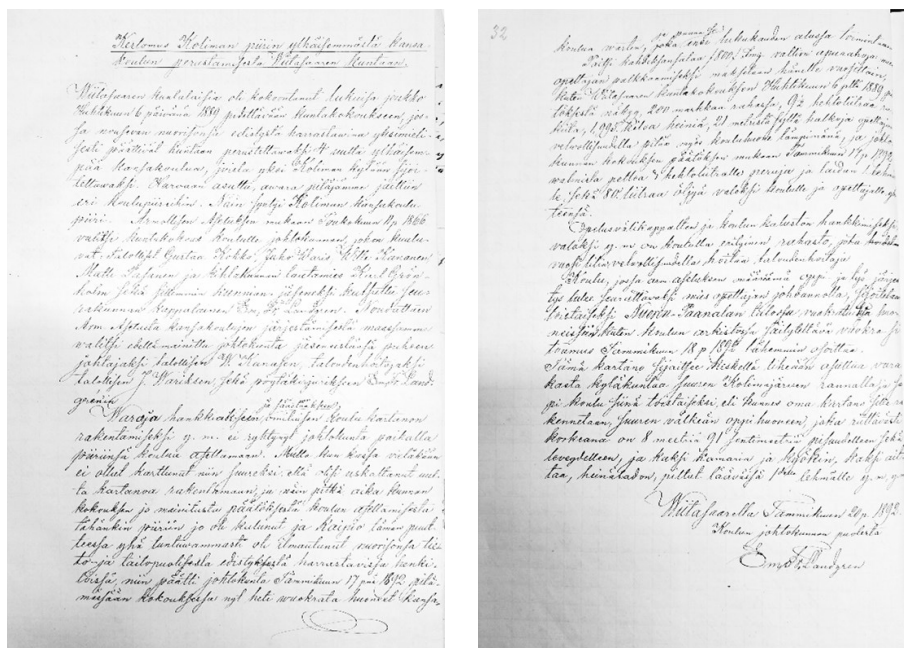 Kertomus Koliman piirin ylhäisemmästä kansa-
koulun perustamisesta Wiitasaaren kuntaan.
Wiitasaaren kuntalaisia oli kokoontunut lukuisa joukko
Huhtikuun 6 päivänä 1889 pidettävään kuntakokoukseen, jos-
sa nousevan nuorisonsa edistystä harrastavina yksimieli-
sesti päättivät kuntaan perustettavaksi 4 uutta ylhäisem-
pää kansakoulua, joista yksi Koliman kylään sijoi-
tettavaksi. Harvaan asuttu, avara pitäjämme jaettiin
eri koulupiireihin. Näin syntyi Koliman kansakoulu-
piiri. Armollisen asetuksen mukaan Toukokuun 11 p. 1866
valitsi kuntakokous koululle johtokunnan, johon kuulu-
vat talolliset Gustaa Kokko,
Matti
ja lautamies Karl Grön-
holm sekä jäseneksi kutsuttu seu-
rakunnan kappalainen Em. Fr. Landgren. Noudattaen
Arm. Asetusta kansakoulujen järjestämisestä maassamme
valitsi edellämainittu johtokunta jäsenistänsä puheen
johtajaksi talollisen W. taloudenhoitajaksi
talollisen J. sekä pöytäkirjuriksi Em. Fr. Land-
grenin.
Waroja hankkiaksensa ja säästääksensä omituisen koulu kartanon
rakentamiseksi y. m. ei ryhtynyt johtokunta paikalla
piirissä koulua asettamaan. Mutta kun kassa vieläkään
ei ollut karttunut niin suureksi, että olisi uskaltanut uut-
ta kartanoa rakentamaan, ja näin pitkä aika kunnan
kokouksen ja mainitusta päätöksestä koulun asettamisesta
tähänkin piiriin jo oli kulunut ja kaipio tämän puut-
teessa yhä tuntuvammasti oli ilmautunut nuorisonsa tie-
to- ja taitopuolista edistystä harrastavissa henki-
löissä, niin päätti johtokunta Tammikuun 17 p:nä 1892 pitä-
mässään kokouksessa nyt heti wuokrata huoneet kansa-
32
koulua warten, joka ensi lukukauden alussa toimintaan
Paitsi kahdeksansataa (800) Smg. valtion apurahaa
opettajan palkkaamiseksi maksetaan hänelle vuosittain,
kuten Wiitasaaren kuntakokouksen Huhtikuun 6 p:ltä 1889 pä-
töksestä näkyy, 200 markkaa rahassa, 9½ hehtolitraa
1,995 kiloa heiniä, 21 metristä syltä halkoja opettajan
velvollisuudella pitää myös kouluhuone lämpimänä, ja johto-
kunnan kokouksen päätöksen mukaan Tammikuun 17 p. 1892,
valmista peltoa 3 hehtolitralle perunia ja laidan 1 lehmäl-
le, sekä 80 litraa öljyä valoksi koululle ja opettajalle yh-
teensä.
Opetusvälikappalten ja koulun kaluston hankkimiseksi
valoksi y. m. on koululla erityinen rahasto, jota
vuosi tilin velvollisuudella hoitaa taloudenhoitaja.
Koulu, jossa arm. asetuksen määräämä oppi ja työ järjes-
tys tulee seurattavaksi mies opettajan johdannolla, sijoitetaan
toistaiseksi Nuora-Taanalan talossa, vuokratuissa huo-
neissa, kuten koulun arkistossa säilytettävä vuokra-
toomus Tammikuun 18 p. 1892 lähemmin osoittaa.
Tämä kartano sijaitsee keskellä tiheään asuttua vara-
kasta kyläkuntaa suuren Kolimajärven rannalla ja
pi koulu siinä toistaiseksi, eli kunnes oma kartano sitä
rakennetaan, suuren valkean oppihuoneen, joka riittävästä
korkeana on 8 metriä 91 sentimetriä pituudelleen sekä
leveydelleen, ja kaksi kamaria ja kyökin, kaksi ait-
taa, heinäladon, pillut läävässä p:lle lehmälle y. m.
Wiitasaarella Tammikuun 20 p. 1892.
Koulun johtokunnan puolesta
Em. Fr. Landgren